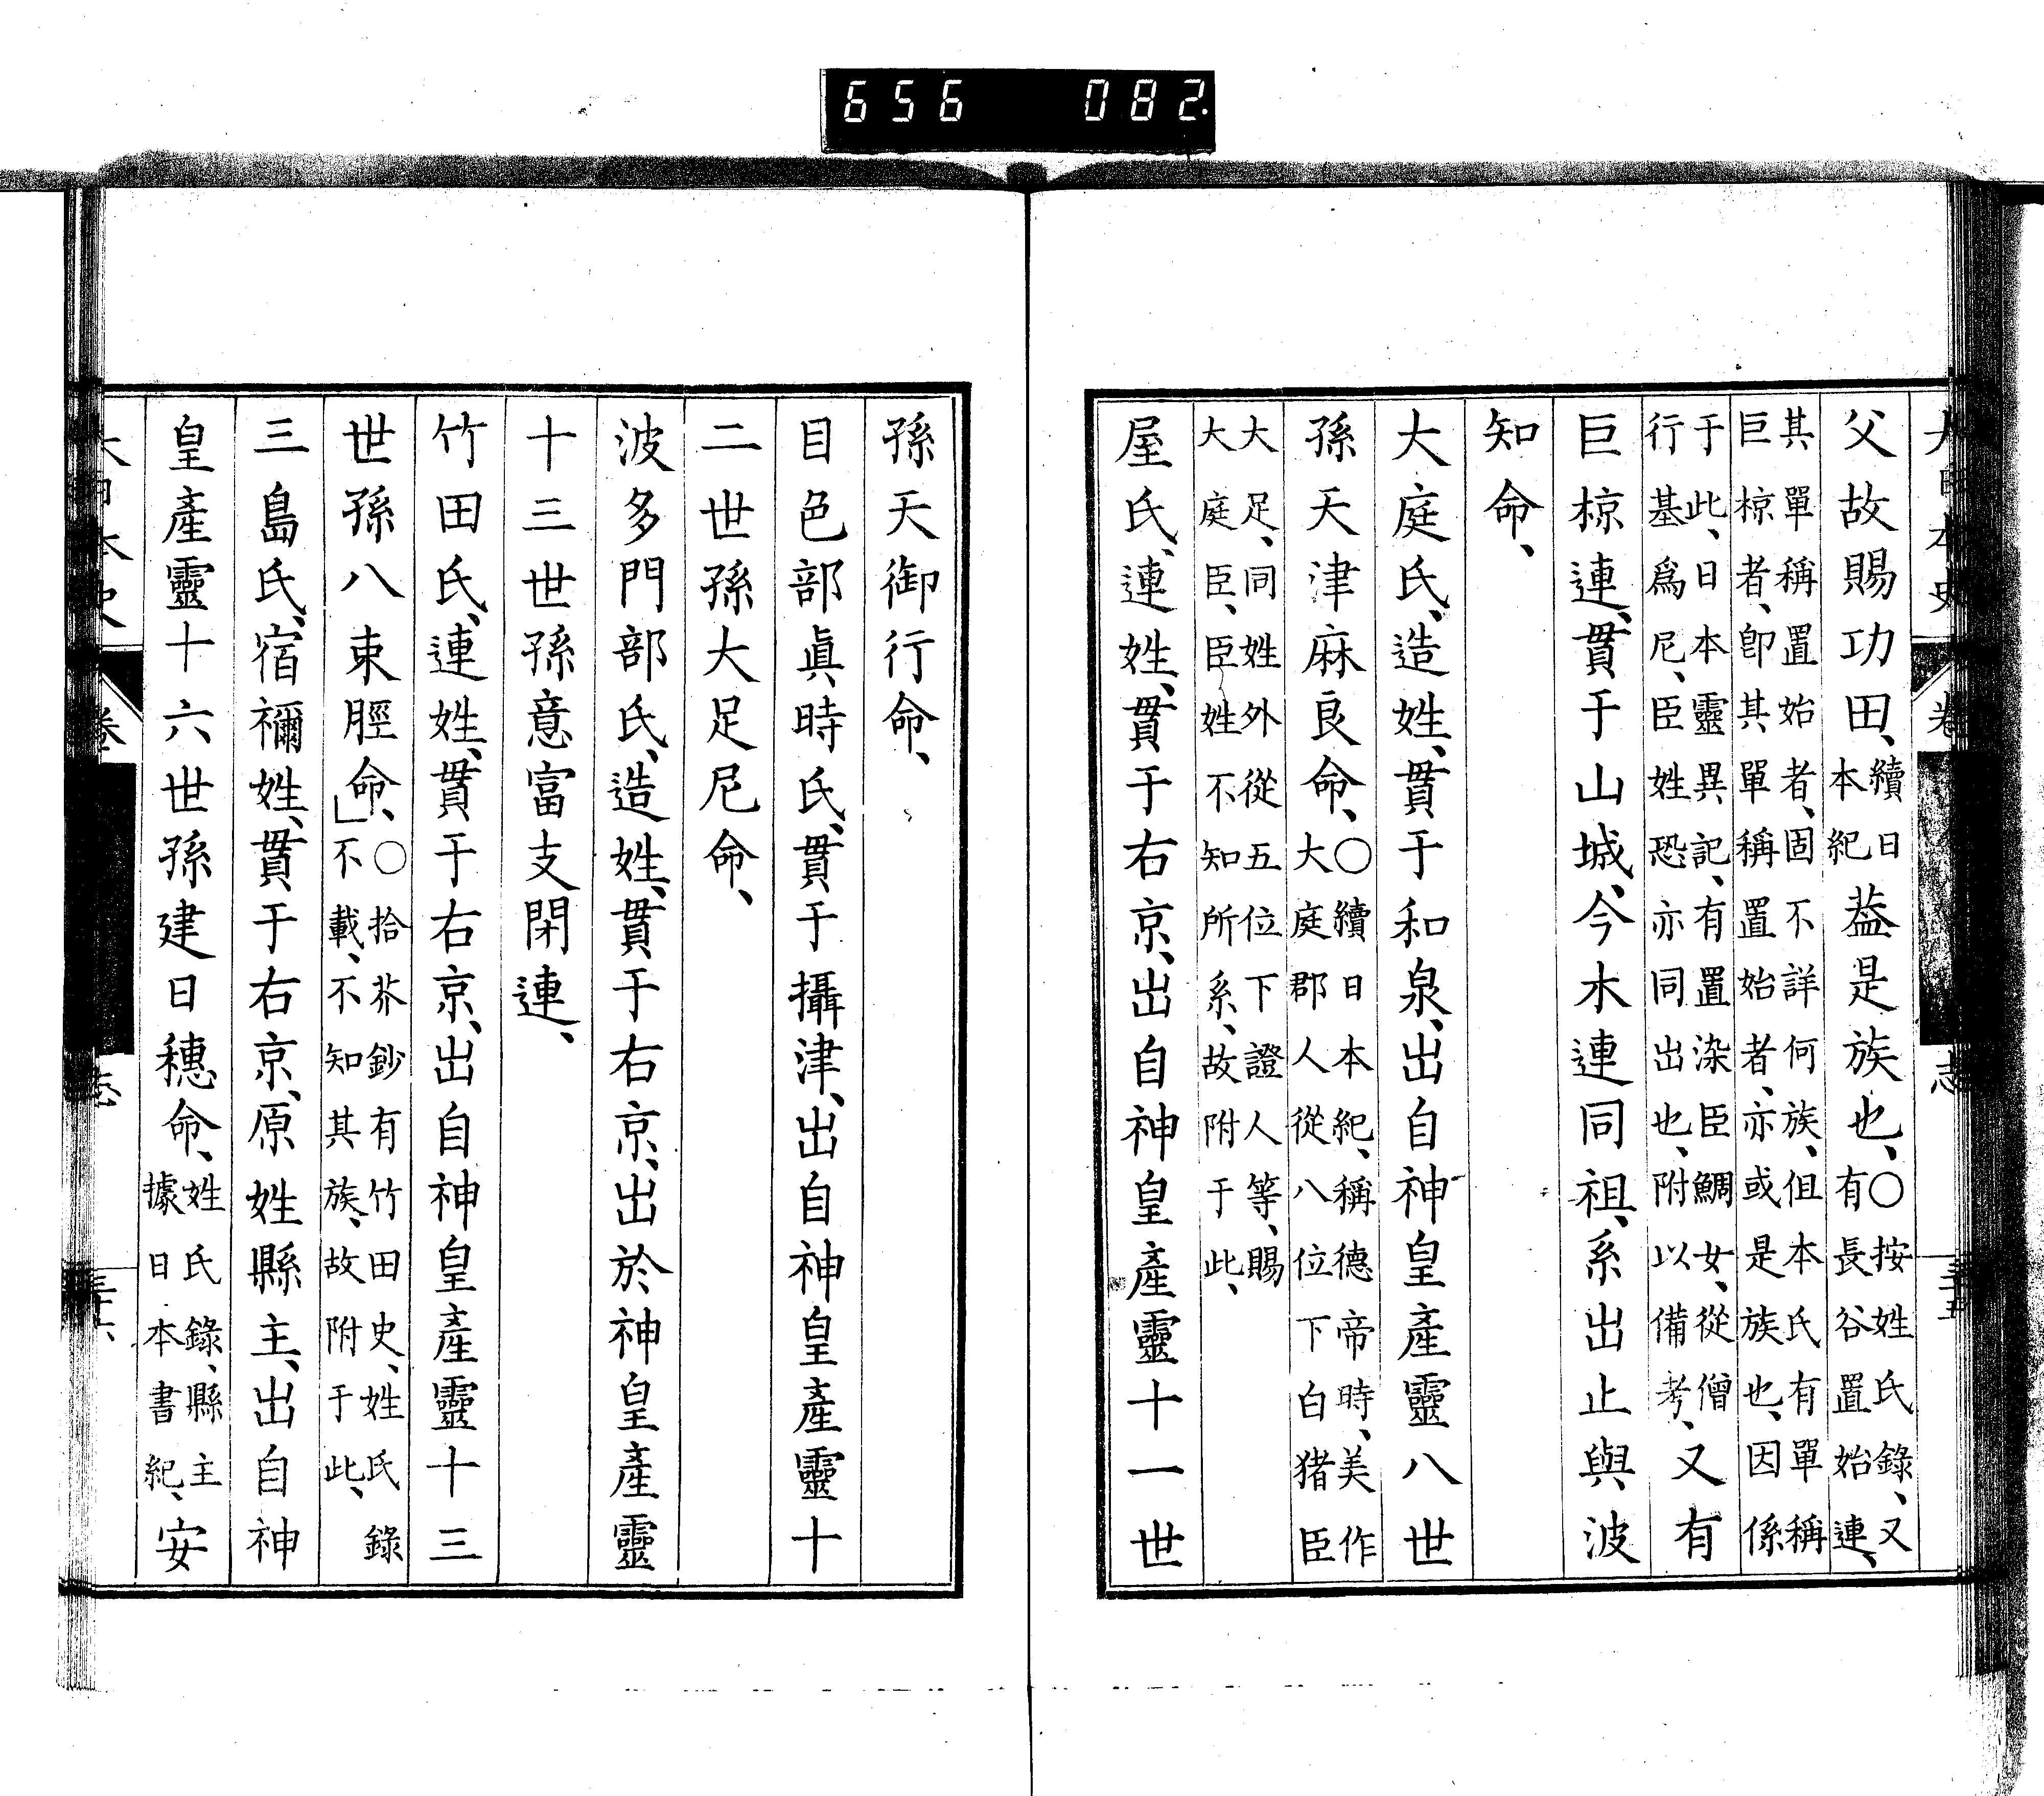 656 082
大日本史 卷 志 三十五
父故賜功田、續日本紀 葢是族也、○按姓氏錄、又有長谷置始連、
其單稱置始者、固不詳何族、但本氏有單稱
巨椋者、卽其單稱置始者、亦或是族也、因係
于此、日本靈異記、有置染臣鯛女、從僧
行基爲尼、臣姓恐亦同出也、附以備考、又有
巨椋連、貫于山城、今木連同祖、系出止與波
知命、
大庭氏、造姓、貫于和泉、出自神皇產靈八世
孫天津麻良命、○續日本紀、稱德帝時、美作
大庭郡人從八位下白猪臣
大足、同姓外從五位下證人等、賜
大庭臣、臣姓不知所系、故附于此、
屋氏、連姓、貫于右京、出自神皇產靈十一世
孫天御行命、
目色部眞時氏、貫于攝津、出自神皇產靈十
二世孫大足尼命、
波多門部氏、造姓、貫于右京、出於神皇產靈
十三世孫意富支閇連、
竹田氏、連姓、貫于右京、出自神皇產靈十三
世孫八束脛命、」○拾芥鈔有竹田史、姓氏錄
不載、不知其族、故附于此、
三島氏、宿禰姓、貫于右京、原姓縣主、出自神
皇產靈十六世孫建日穗命、姓氏錄、縣主據日本書紀、安
大日本史 卷 志 三十六